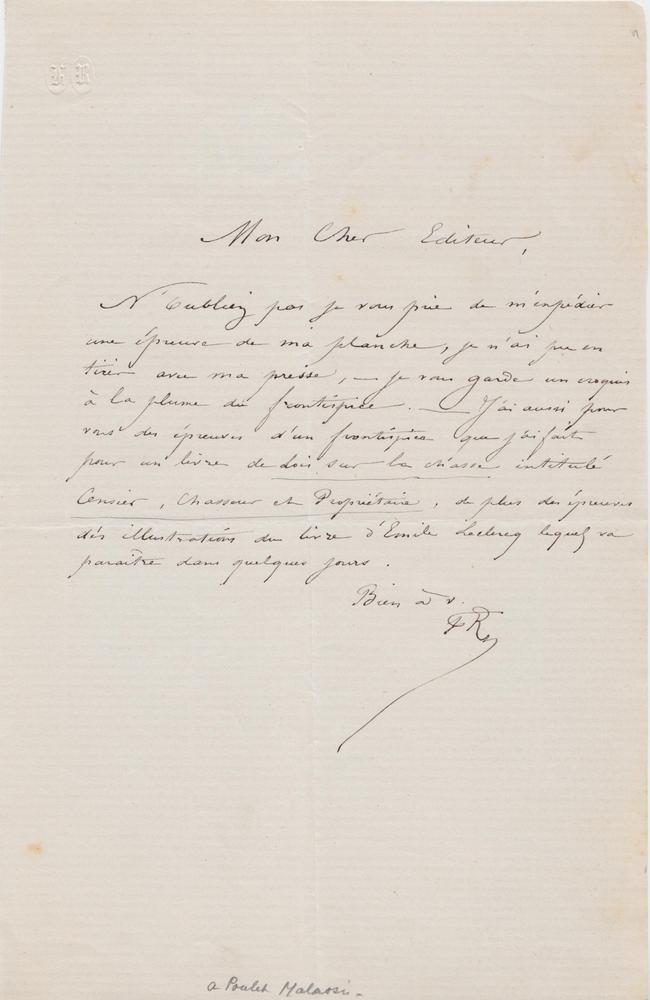 FR
Mon Cher Editeur,
N'oubliez pas je vous prie de m'expédier
une épreuve de ma planche, je n'ai pu en
tirer avec ma presse, — je vous garde un croquis
à la plume du frontispice. — J'ai aussi pour
vous des épreuves d'un frontispice que j'ai fait
pour un livre de lois sur la chasse intitulé
Censier, Chasseur et Propriétaire, de plus des épreuves
des illustrations du livre d'Emile Leclercq lequel va
paraître dans quelques jours.
Bien à v.
FR
a Poulet Malassi-